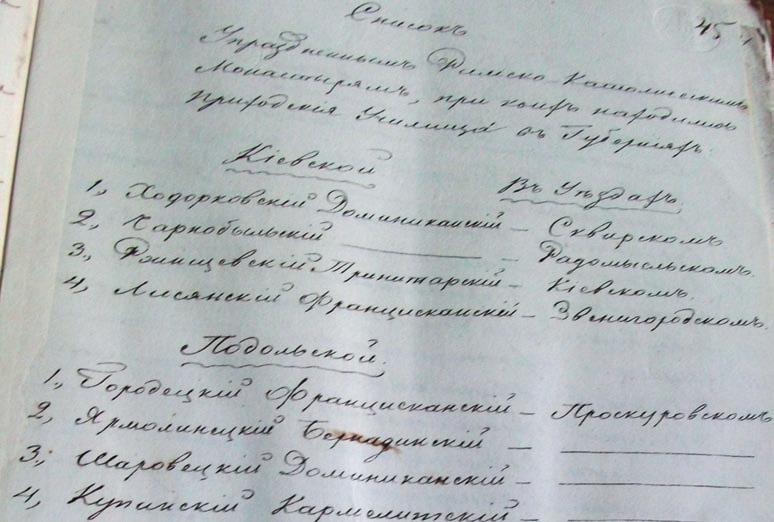 Списокъ
45
Упраздненнымъ Римско Католическимъ
Монастырямъ, при коихъ находились
приходскія Училища въ Губерніяхъ.
Кіевской
Въ Уѣздахъ
1, Ходорковскій Доминиканскій — Сквирскомъ
2, Чарнобыльскій ———— — Радомысльскомъ.
3, Ржищевскій Тринитарскій — Кіевскомъ.
4, Лисянскій Францисканскій — Звенигородскомъ.
Подольской.
1, Городецкій Францисканскій — Проскуровскомъ
2, Ярмолинецкій Бернадинскій — ————
3, Шаровецкій Доминиканскій — ————
4, Купинскій Кармелитскій — ————